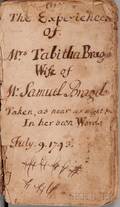 The Experiences
of
Mrs Tabitha Bragg
Wife of
Mr Samuel Bragg
Taken as near as might be
In her own Words
July 9. 1793.